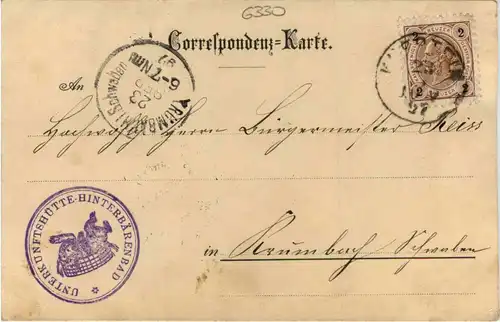 6330
Correspondenz=Karte.
2
KRUMBACH (Schwaben)
6-7 NM
23
SEP
97
An
Hochwohl Herrn Bürgermeister Reiss
in Krumbach Schwaben
UNTERKUNFTSHÜTTE-HINTERBÄRENBAD